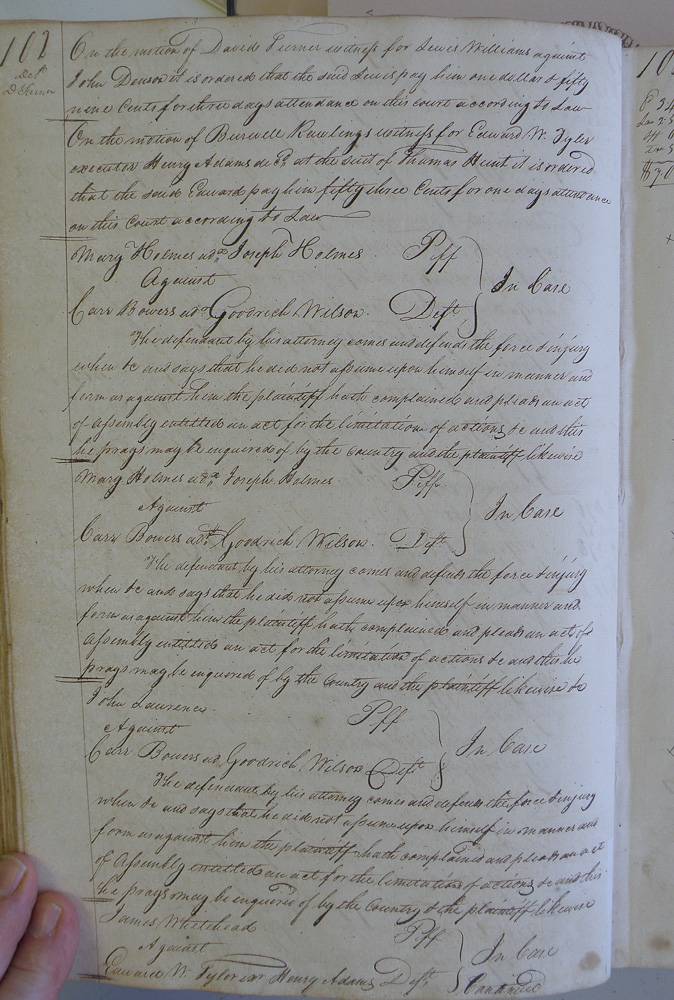 102
Deld
D Turner
On the motion of David Turner witness for Lewis Williams against
John Denson it is ordered that the said Lewis pay him one dollar & fifty
nine Cents for three days attendance on this court according to Law
On the motion of Burwell Rawlings witness for Edward W. Tyler
executor Henry Adams decd at the suit of Thomas Hunt it is ordered
that the said Edward pay him fifty three Cents for one days attendance
on this Court according to Law
Mary Holmes adx Joseph Holmes Plff
Against
In Case
Carr Bowers adr Goodrich Wilson. Deft
The defendant by his attorney comes and defends the force & injury
when &c and says that he did not assume upon himself in manner and
form as against him the plaintiff hath complained and pleads an act
of assembly entitled an act for the limitation of actions &c and this
he prays may be enquired of by the Country and the plaintiff likewise
Mary Holmes adx Joseph Holmes Plff
Against
In Case
Carr Bowers adr Goodrich Wilson. Deft
The defendant by his attorney comes and defends the force & injury
when &c and says that he did not assume upon himself in manner and
form as against him the plaintiff hath complained and pleads an act of
Assembly entitled an act for the limitation of actions &c and this he
prays may be enquired of by the Country and the plaintiff likewise &c
John Lawrence Plff
Against
In Case
Carr Bowers ad. Goodrich Wilson Deft
The defendant by his attorney comes and defends the force & injury
when &c and says that he did not assume upon himself in manner and
form as against him the plaintiff hath complained and pleads an act
of Assembly entitled an act for the limitation of actions &c and this
he prays may be enquired of by the Country & the plaintiff likewise
James Whitehead Plff
Against
In Case
Edward W. Tyler exr Henry Adams Deft Continued
10